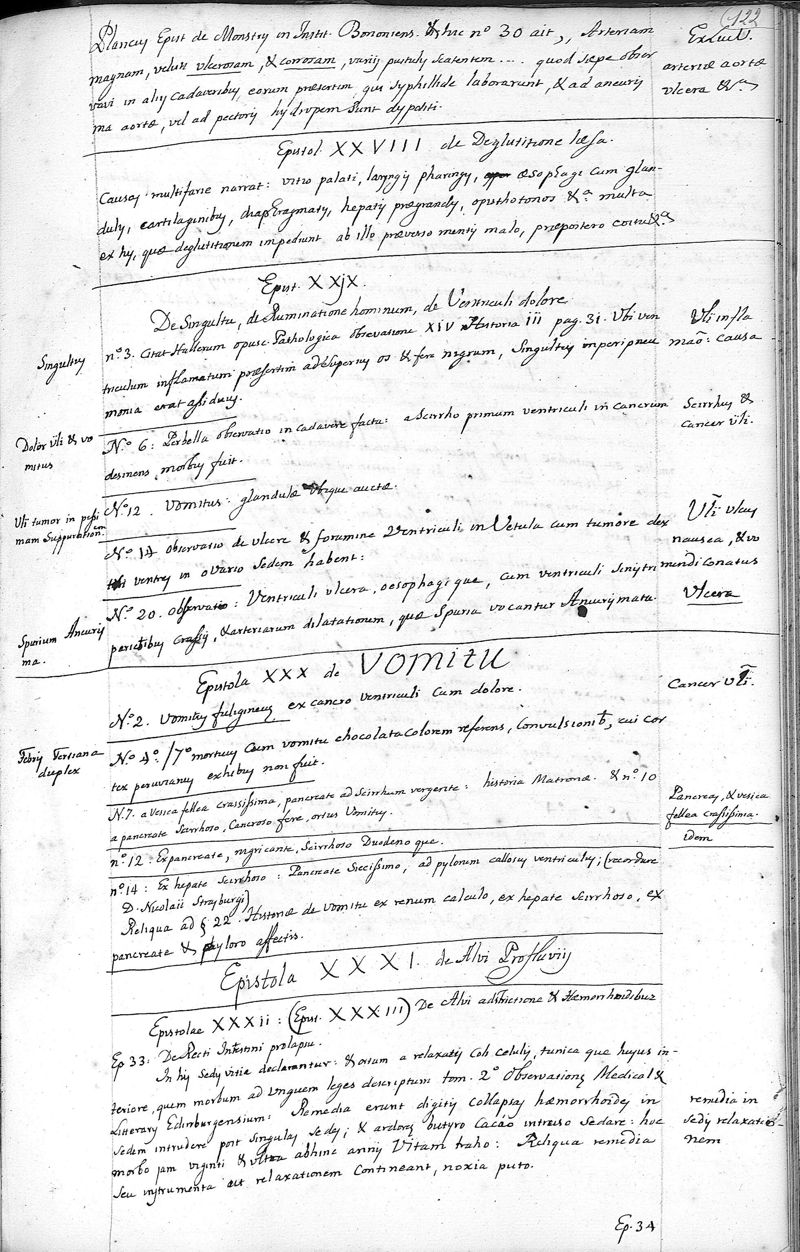 122
Plancus Epist de Monstris in Instit. Bononiens. & hic nº 30 ait,, Arteriam
magnam, veluti ulcerosam, & corrosam, variis pustulis scatentem .... quod sæpe obser
vavi in aliis cadaveribus, eorum præsertim, qui syphillide laborarunt, & ad aneuris
ma aortæ, vel ad pectoris hydropem sunt dispositi.
Ex Lue V.
arteriæ aortæ
ulcera &ª
Epistol. XXVIII de Deglutitione læsa.
Causas multifarie narrat: vitio palati, laryngis pharingis, æsophagi cum glan-
dulis, cartilaginibus, diaphragmatis, hepatis prægrandis, opisthotonos &ª multa
ex his, quæ deglutitionem impediunt ab illo præverso mentis malo, præpostero coitu &ª
Epist. XXjX.
De Singultu, de Ruminatione hominum, de Ventriculi dolore
Singultus
nº 3. Citat Hallerum opusc. Pathologica observatione XIV Historia III pag. 31. Ubi ven
triculum inflamatum præsertim ad superius os & fere nigrum, singultus in peripneu
monia erat assiduus.
Vli infla
maõ: causa
Dolor vli & vo
mitus
N.º 6: Perbella observatio in cadavere facta: a scirrho primum ventriculi in cancrum
desinens morbus fuit.
Scirrhus &
cancer vli.
N.º 12. Vomitus: glandulæ ubique auctæ.
Vli tumor in pessi
mam suppurationem
Nº 14 observatio de ulcere & foramine Ventriculi, in Vetula cum tumore dex
tri ventris in ovario sedem habent:
Vli ulcus
nausea, & vo
mendi conatus
Nº. 20. Observatio: Ventriculi ulcera, oesophagique, cum ventriculi sinistri
parietibus crassis, & arteriarum dilatationum, quæ spuria vocantur Aneurismata.
Ulcera
Spurium Aneuris
ma.
Epistola XXX de Vomitu
Nº. 2. Vomitus fuligineus ex cancro ventriculi cum dolore.
Cancer Vli.
Febris Tertiana
duplex
Nº 4º. 17º mortuus cum vomitu chocolata colorem referens, convulsionib, cui cor
tex peruvianus exhibitus non fuit.
N. 7. a vesica fellea crassissima, pancreate ad scirrhum vergente: historia Matronæ. & nº 10
a pancreate scirrhoso, cancroso fere, ortus Vomitus.
Pancreas, & vesica
fellea crassissima.
idem
nº. 12: Ex pancreate, nigricante, scirrhoso Duodenoque.
nº. 14: Ex hepate scirrhoso: Pancreate siccissimo, ad pylorum callosus ventriculus; (recordare
D. Nicolaii Strasburgi)
Reliqua ad § 22. Historiæ de vomitu ex renum calculo, ex hepate scirrhoso, ex
pancreate & pyloro affectis.
Epistola XXXI. de Alvi Profluviis
Epistolae XXXii: (Epist. XXXIII) De Alvi adstrictione & Hæmorrhoidibus
Ep 33: De Recti Intestini prolapsu.
In his sedis vitia declarantur: & ortum a relaxatis coli celulis, tunicaque huius in-
teriore, quem morbum ad unguem leges descriptum tom. 2º Observations Medical &
Litterary Edinburgensium: Remedia erunt digitis collapsas hæmorrhoides in
sedem intrudere post singulas sedes; & ardores butyro Cacáo intruso sedare: hoc
morbo jam viginti & ultra abhinc annis Vitam traho: Reliqua remedia
seu instrumenta ut relaxationem contineant, noxia puto.
remedia in
sedis relaxatio-
nem
Ep. 34